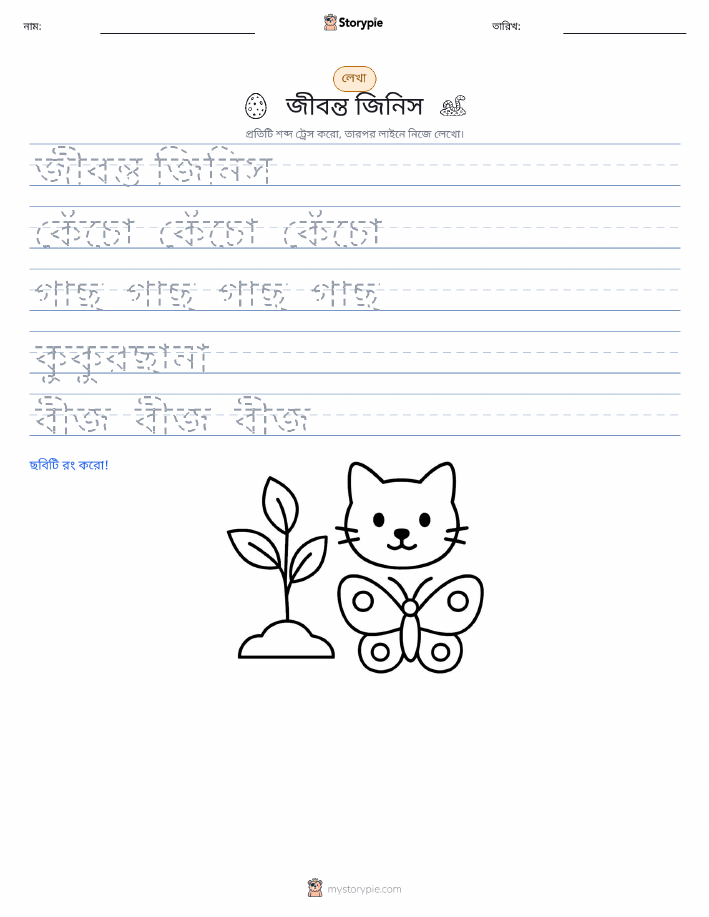 নাম: Storypie তারিখ:
লেখা
জীবন্ত জিনিস
প্রতিটি শব্দ ট্রেস করো, তারপর লাইনে নিজে লেখো।
জীবন্ত জিনিস
কেঁচো কেঁচো কেঁচো
গাছ গাছ গাছ গাছ
কুকুরছানা
বীজ বীজ বীজ
ছবিটি রং করো!
mystorypie.com